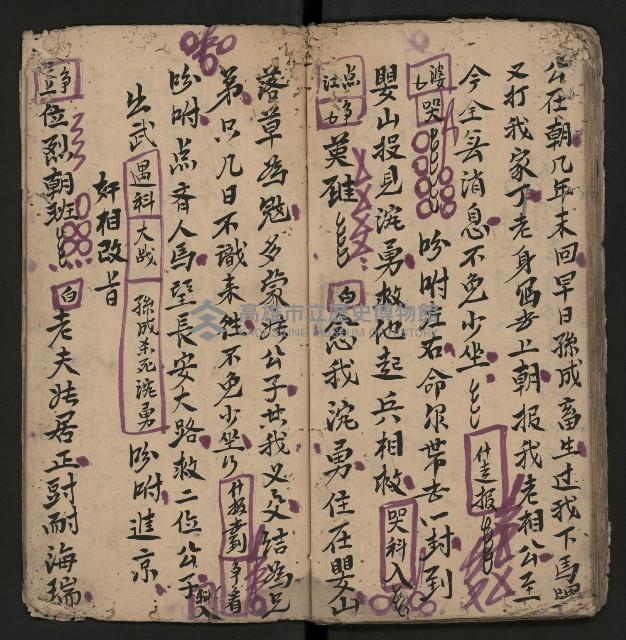 公在朝几年未回早日孫成畜生过我下馬
又打我家丁老身写書上朝报我老相公至
今全無消息不免少坐 什走报
婆上 哭 吩咐右命尔帶去一封到
嬰山报見浣勇救他起兵相救 哭科入
点江 净上 英雄 白 念我浣勇住在嬰山
落草為魁多蒙法公子共我义交結為兄
弟只几日不識来往不免少坐 什报書到 净看
吩咐点齊人馬望長安大路救二位公子 入
出武 遇科 大战 孫成杀死浣勇 吩咐進京
奸相改首
净上 位烈朝班 白 老夫法居正對耐海瑞
高雄市立歷史博物館
KAOHSIUNG MUSEUM OF HISTORY